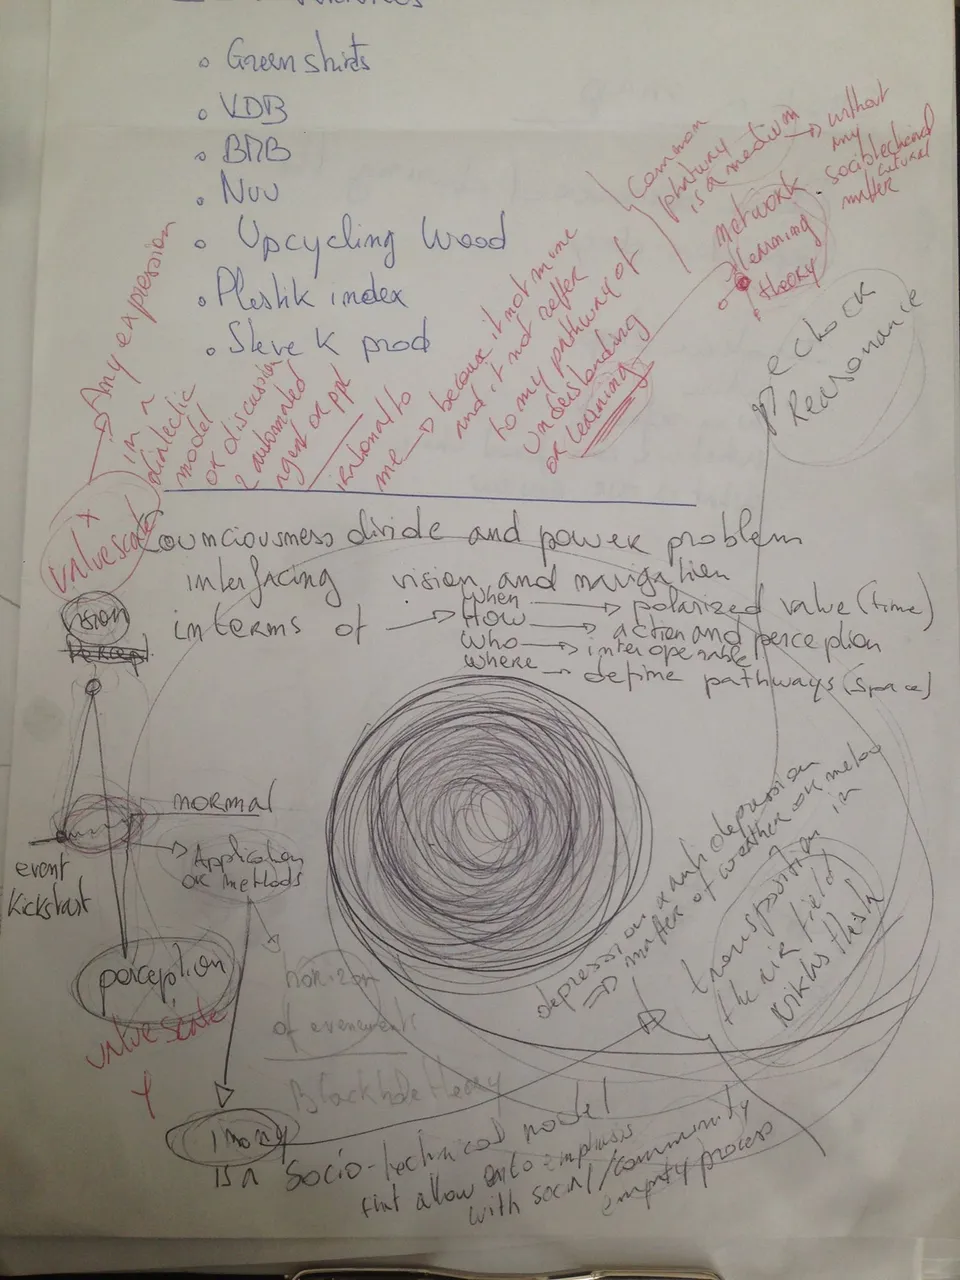 o Greenshirts
o VDB
o BMB
o Nuu
o Upcycling Wood
o Plestik index
o Steve K prod
Any expression
in a
dialectic
model
or discussion
2 automated
agent or ppl
irational to
me → because it not mine
and it not reffer
to my pathway of
understanding
or learning
Common
phatway
is a medium → without
any
sociotechnical
cutural
matter
network
learning
theory
echo ck
Reasonance
value scale
x
Counciousness divide and power problem
interfacing vision and navigation
interms of →
when → polarized value (time)
How → action and perception
who → interoperable
where → define pathways (space)
vision
normal
Application
or methods
event
kickstart
perception
value scale
Y
horizon
of evenements
Blackhole theory
depression or anti depression
⇒ matter of weather or meteo
transposition in
the air field
irony
is a Socio-technical model
that allow to emphasis
with social/community
empty process